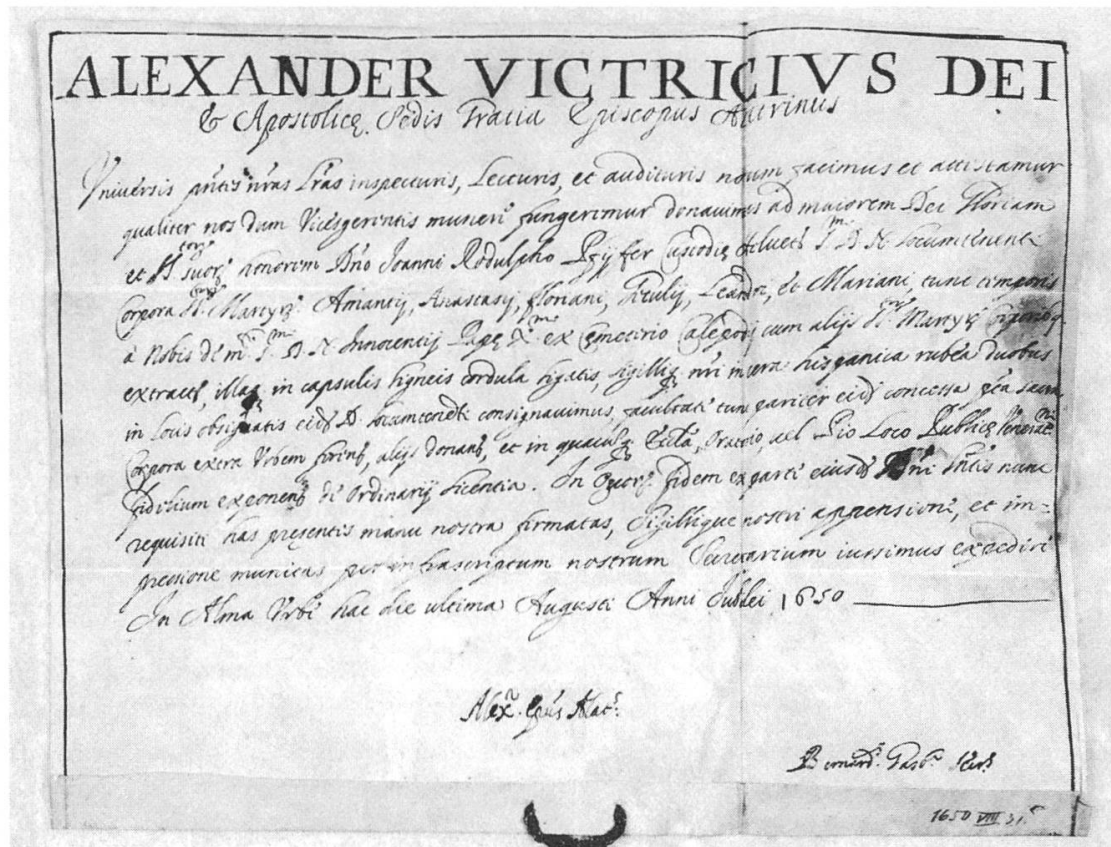 ALEXANDER VICTRICIVS DEI
& Apostolicę Sedis Gratia Episcopus Alatrinus
Vniversis pñtes nras Lras inspecturis, Lecturis, et audituris notum facimus et attestamur
qualiter nos dum Vicesgerentis muneri fungeremur donavimus ad maiorem Dei Gloriam
et suorũ honorem Dno Joanni Rodulpho Pfyffer Custodię Helvet. S.mi D. N. Locumtenenti
Corpora Martyrũ Amantij, Anastasij, Floriani, Leandri, et Mariani, tunc temporis
à Nobis de S.mi D. N. Innocentij Papę X.mi ex Cęmeterio cum alijs Martyrũ
extracta, in capsulis ligneis cordula ligatis, sigillisq nri in cera hispanica rubea duobus
in locis obsignatis eid. D. Locumtenenti consignavimus, facultate tunc pariter eid. concessa sacra
Corpora extra Vrbem alijs donandi, et in quacũq Eccla, Oratorio, vel Pio Loco Publicę
fidelium exponendi de Ordinarij Licentia. In quorũ fidem ex parte eiusdẽ Dni nunc
requisiti has pręsentes manu nostra firmatas, Sigillique nostri appensione, et im=
pressione munitas per infrascriptum nostrum Secretarium iussimus expediri
In Alma Vrbe hac die ultima Augusti Anni Jubilei 1650
Alex. Epus Alat.
Bernard. Secr.
1650 VIII 31.